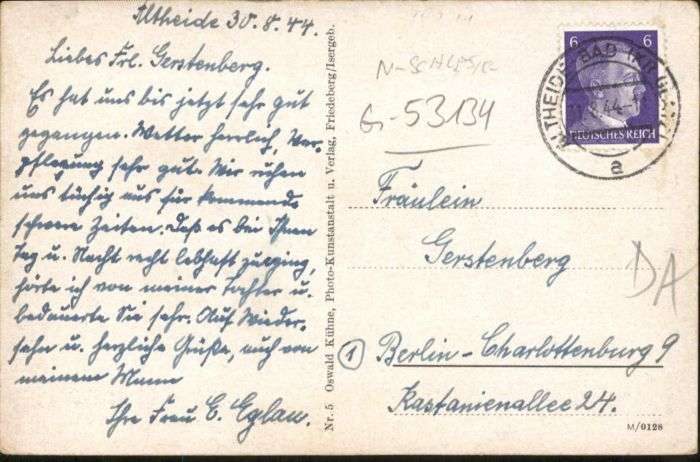 Altheide 30.8.44.
Liebes Frl. Gerstenberg.
Es hat uns bis jetzt sehr gut
gegangen. Wetter herrlich, Ver-
pflegung sehr gut. Wir ruhen
uns tüchig aus für kommende
schwere Zeiten. Daß es bei Ihnen
Tag u. Nacht recht lebhaft zuging,
hörte ich von meiner Tochter u.
bedauerte Sie sehr. Auf Wieder-
sehn u. herzliche Grüße, auch von
meinem Mann
Ihre Frau E. Eglau.
Nr. 5 Oswald Kühne, Photo-Kunstanstalt u. Verlag, Friedeberg/Isergeb.
G-53134
6 6
DEUTSCHES REICH
ALTHEIDE BAD
a
Fräulein
Gerstenberg
DA
1 Berlin-Charlottenburg 9
Kastanienallee 24.
M/0128